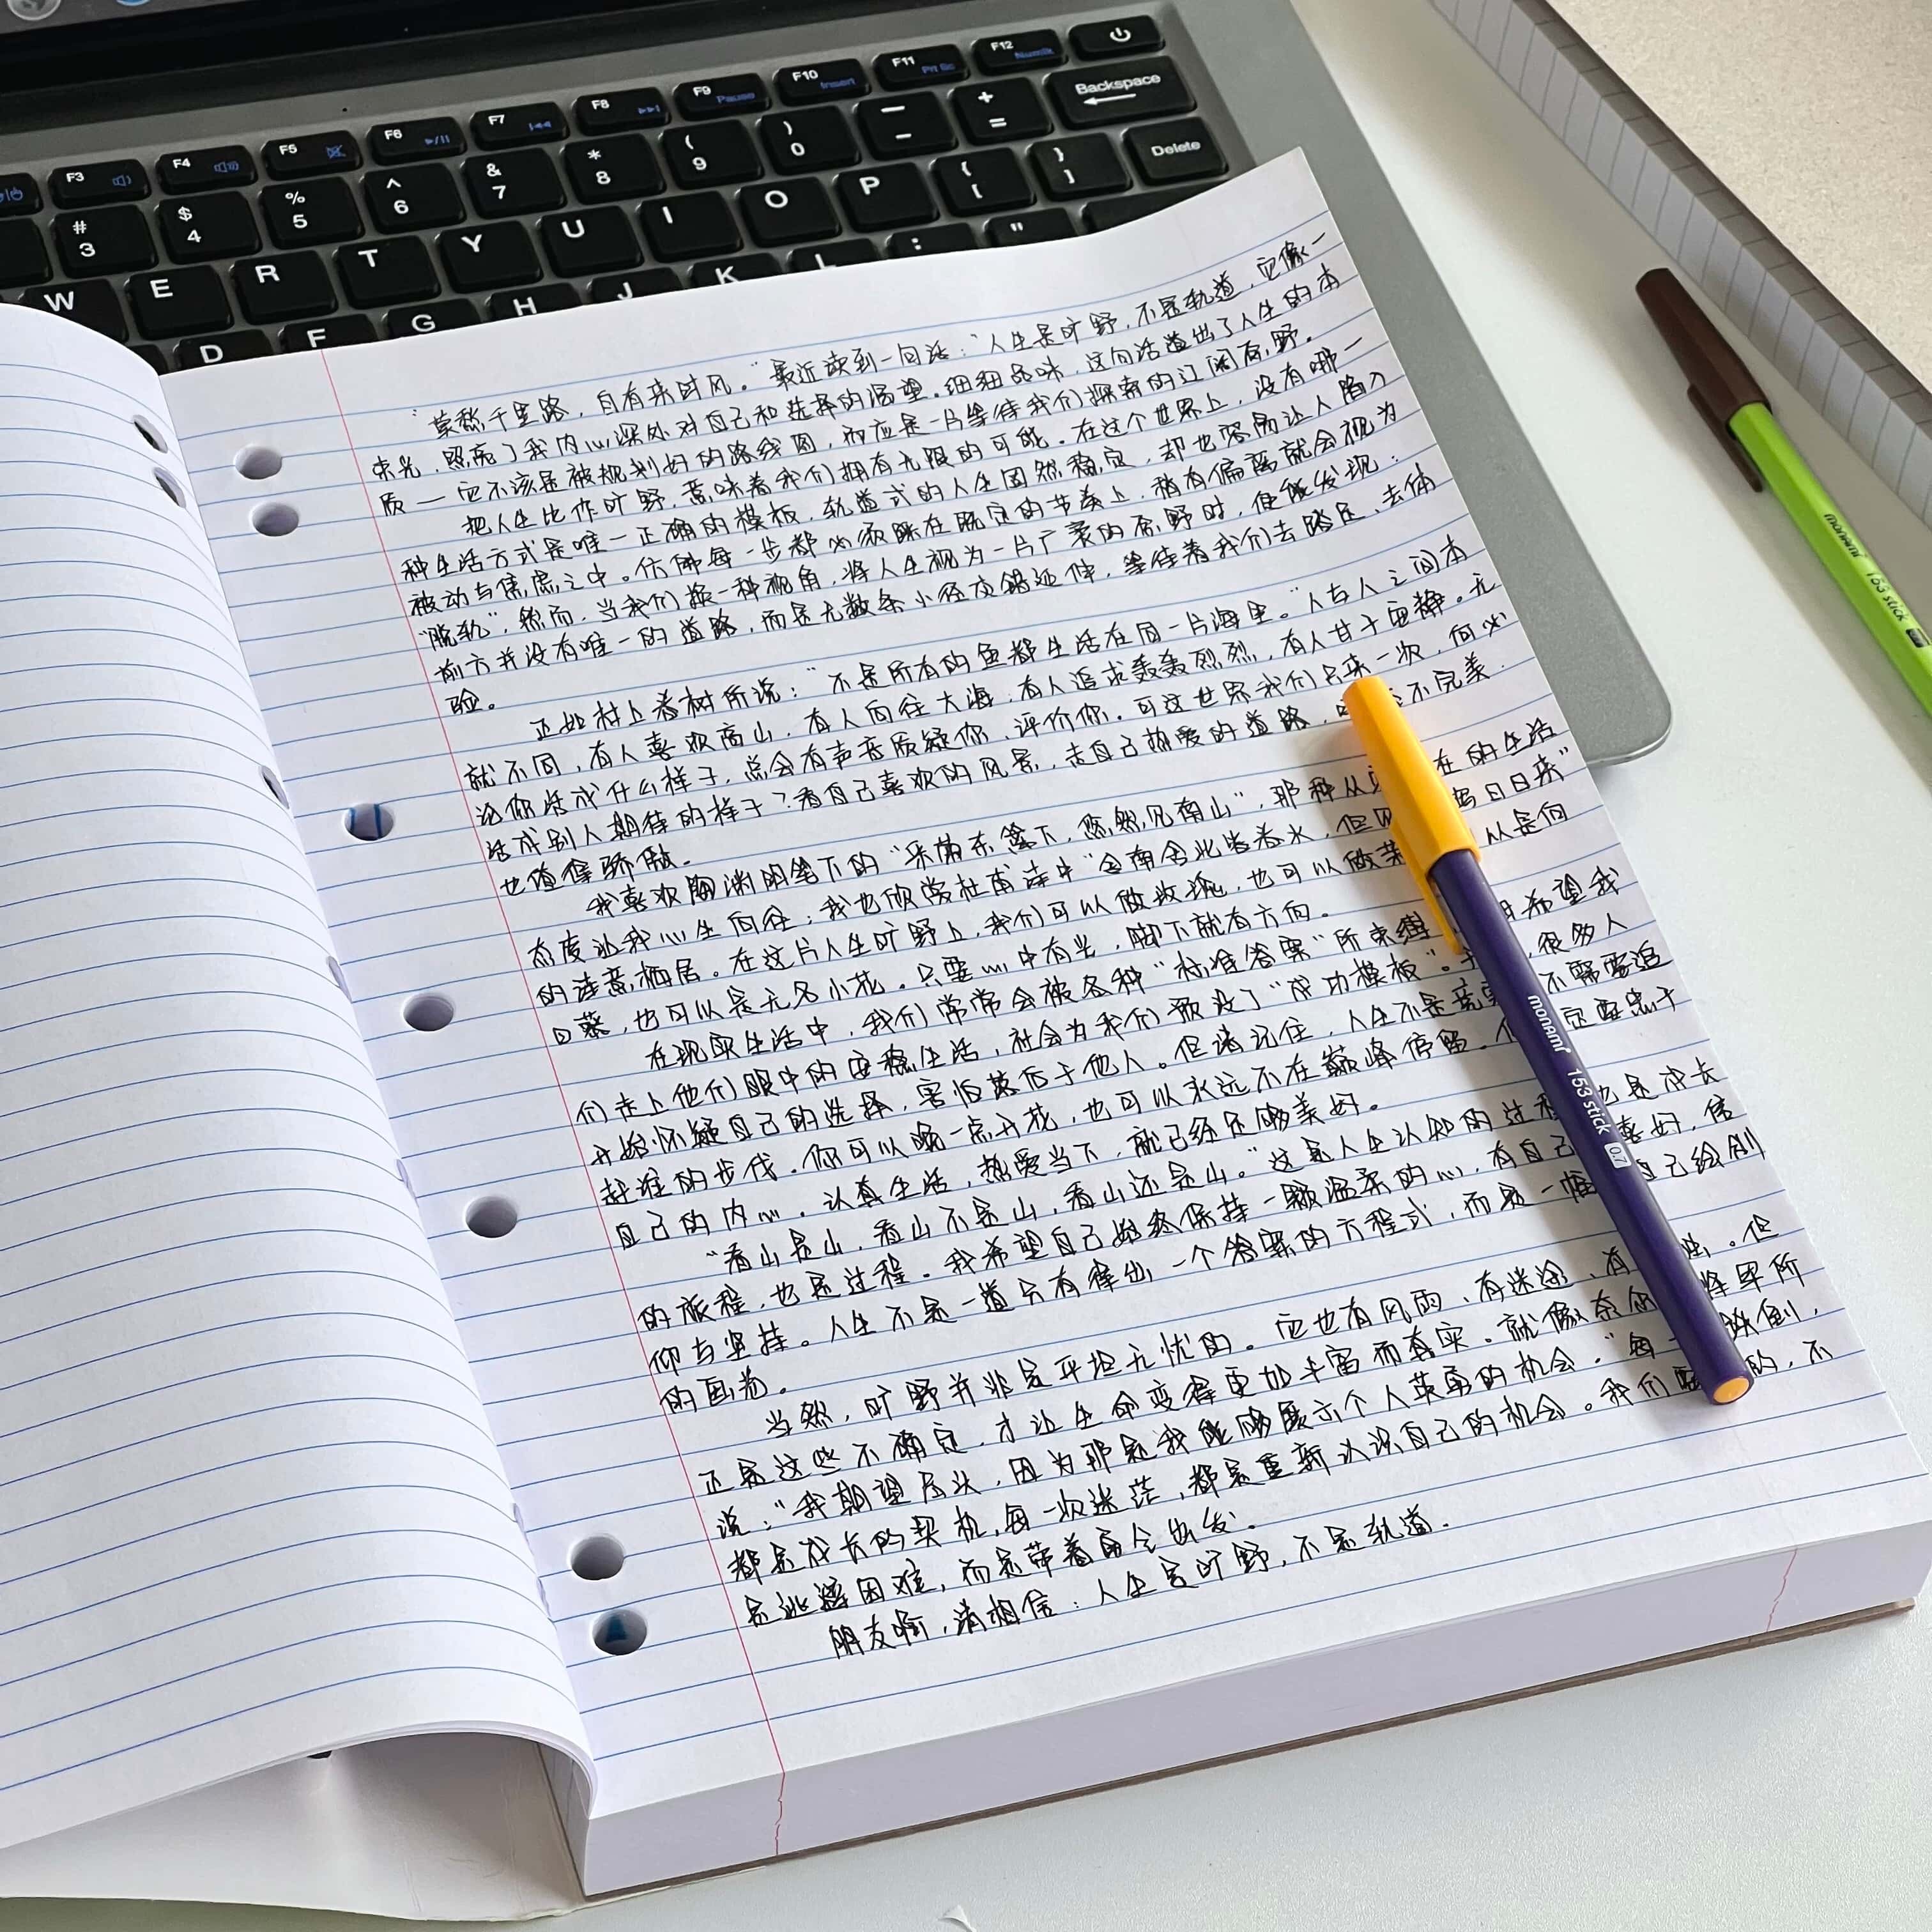 F3
F4
F5
F6
F7
F8
F9 Pause
F10 Insert
F11 Prt Sc
F12 Numlk
# 3
$ 4
% 5
^ 6
& 7
* 8
( 9
) 0
— -
+ =
Backspace
W E R T Y U I O P { [ } ] Delete
D F G H J K L : "
“莫愁千里路，自有来时风。”最近读到一句话：“人生是旷野，不是轨道，它像一
束光，照亮了我内心深处对自己和选择的渴望。细细品味，这句话道出了人生的本
质——它不该是被规划好的路线图，而应是一片等待我们探索的辽阔原野。
把人生比作旷野，意味着我们拥有无限的可能。在这个世界上，没有哪一
种生活方式是唯一正确的模板，轨道式的人生固然稳定，却也容易让人陷入
被动与焦虑之中。仿佛每一步都必须踩在既定的节奏上，稍有偏离就会视为
“脱轨”，然而，当我们换一种视角，将人生视为一片广袤的原野时，便能发现：
前方并没有唯一的道路，而是无数条小径交错延伸，等待着我们去踏足、去体
验。
正如村上春树所说：“不是所有的鱼都生活在同一片海里。”人与人之间本
就不同，有人喜欢高山，有人向往大海；有人追求轰轰烈烈，有人甘于宁静。无
论你活成什么样子，总会有声音质疑你、评价你。可这世界我们只来一次，何必
活成别人期待的样子？看自己喜欢的风景，走自己热爱的道路，不完美，
也值得骄傲。
我喜欢陶渊明笔下的“采菊东篱下，悠然见南山”，那种从在的生活
态度让我心生向往；我也欣赏杜甫诗中“舍南舍北皆春水，但日日来”
的诗意栖居。在这片人生旷野上，我们可以做玫瑰，也可以做以是向
日葵，也可以是无名小花。只要心中有光，脚下就有方向。
在现实生活中，我们常常会被各种“标准答案”所束缚希望我
们走上他们眼中的安稳生活，社会为我们预设了“成功模板”。，很多人
开始怀疑自己的选择，害怕落后于他人。但请记住，人生不是竞不需要追
赶谁的步伐。你可以晚一点开花，也可以永远不在巅峰停留。定要忠于
自己的内心。认真生活，热爱当下，就已经足够美好。
“看山是山，看山不是山，看山还是山。”这是人生认知的过也是成长
的旅程，也是过程。我希望自己始终保持一颗温柔的心，有自己喜好，信
仰与坚持。人生不是一道只有得出一个答案的方程式，而是一幅自己绘制
的画卷。
当然，旷野并非是平坦无忧的。它也有风雨、有迷途、有。但
正是这些不确定，才让生命变得更加丰富而真实。就像所
说：“我期望尽头，因为那是我能够展示个人英勇的机会。”每跌倒，
都是成长的契机，每一次迷茫，都是重新认识自己的机会。我们的，不
是逃避困难，而是带着勇气出发。
朋友啊，请相信：人生是旷野，不是轨道。
monami 153 stick 0.7
monami 153 stick